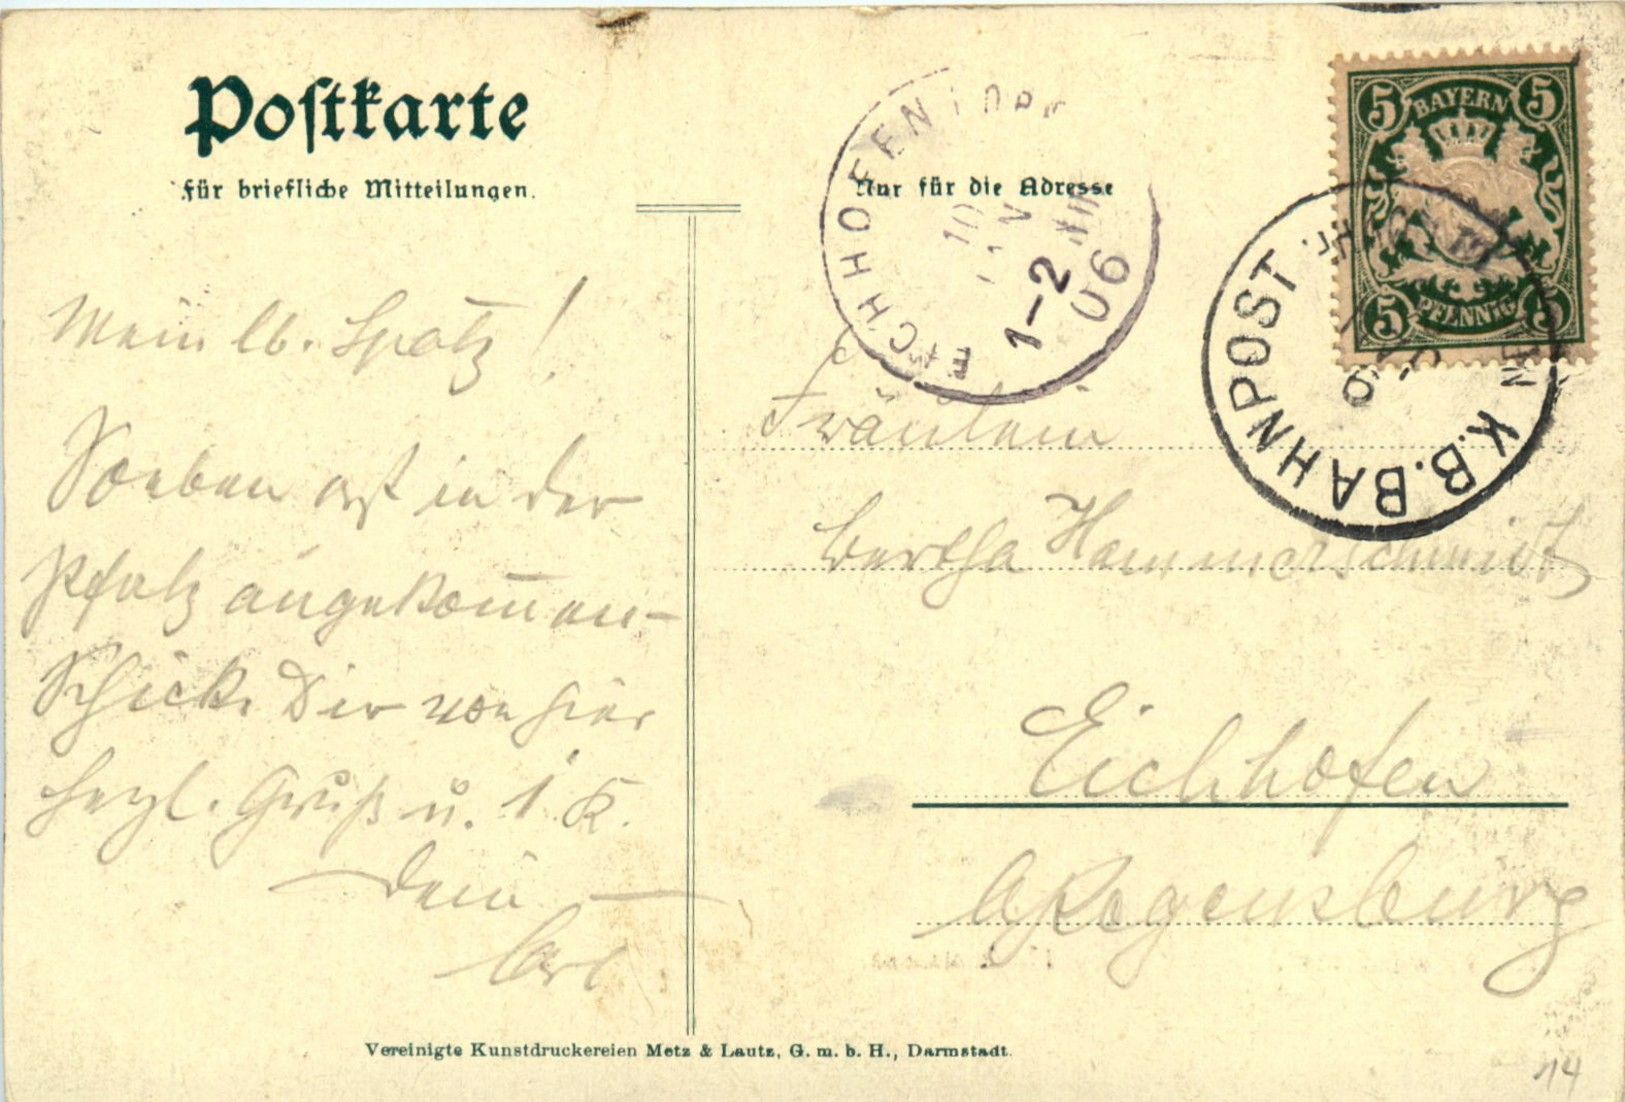 Postkarte
für briefliche Mitteilungen.
Nur für die Adresse
BAYERN
5 5
5 5
PFENNIG
EICHHOFEN
1-2
06
K.B.BAHNPOST
Mein lb. Spatz!
Soeben erst in der
Pfalz angekommen -
Schicke Dir von hier
herzl. Gruß u. 1 K.
Dein
Carl
Fräulein
Bertha Hammerschmidt
Eichhofen
Regensburg
Vereinigte Kunstdruckereien Metz & Lautz, G. m. b. H., Darmstadt.
14